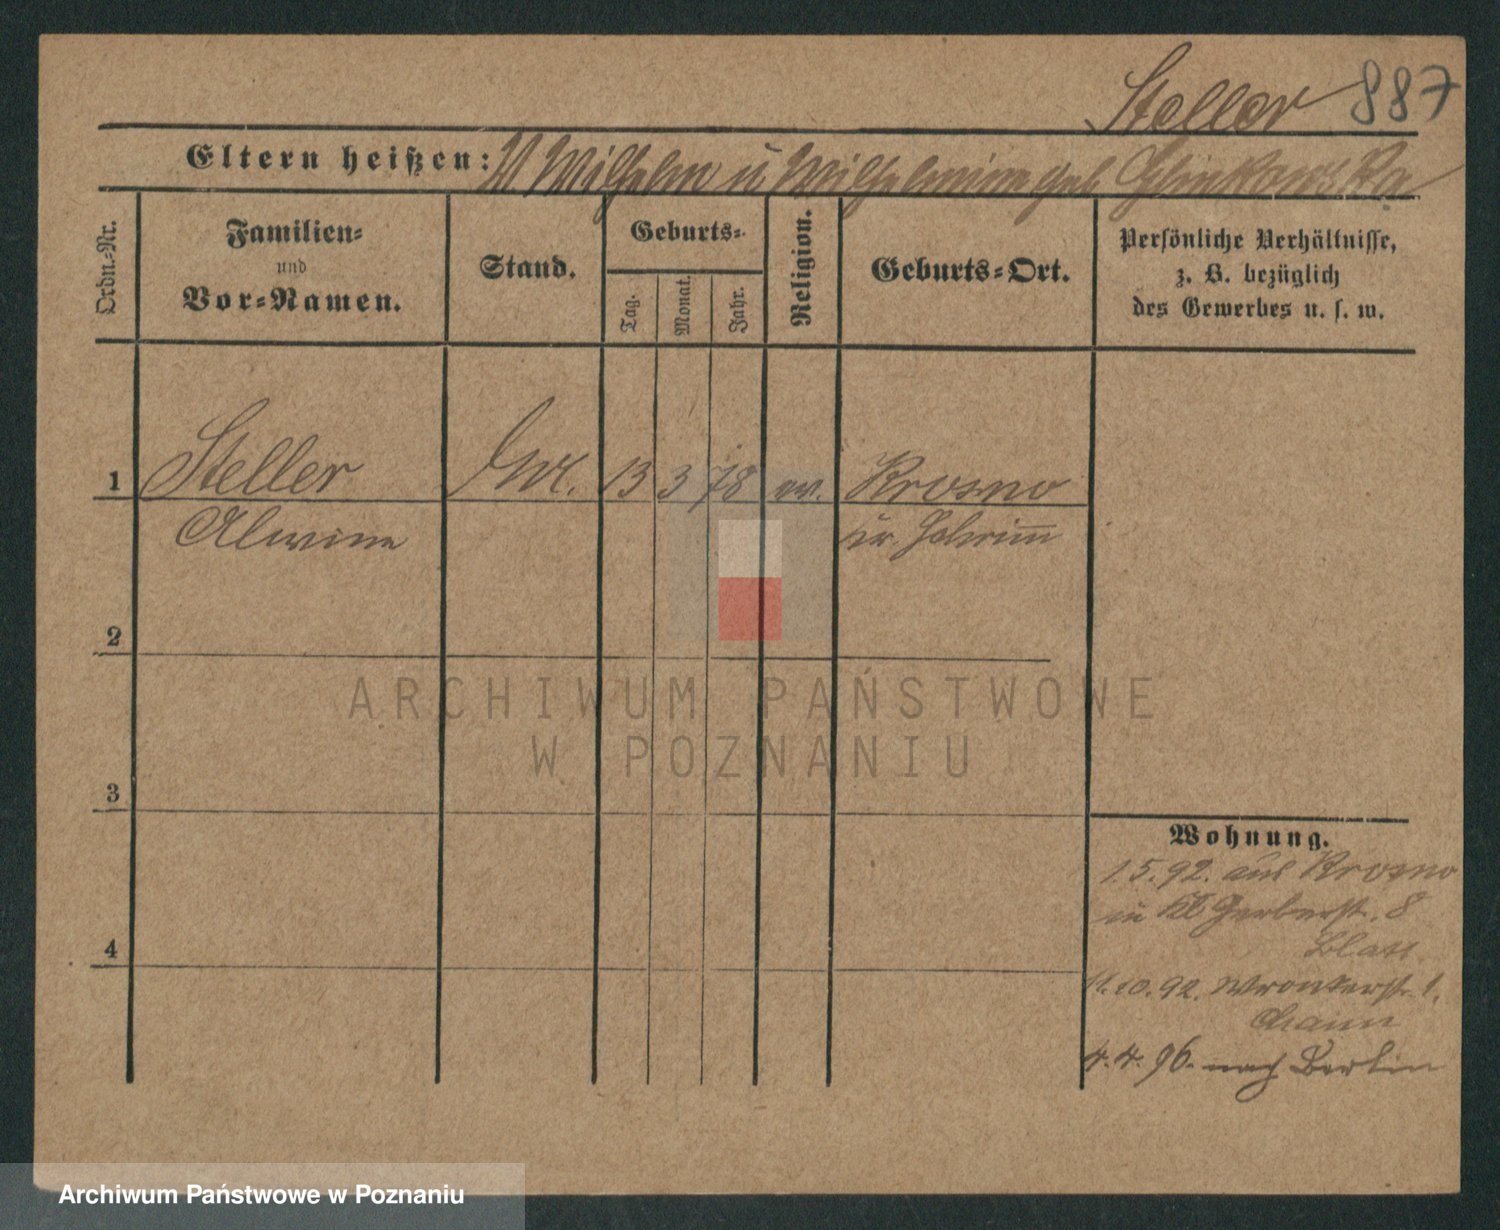 Steller 887
Eltern heißen: Wilhelm u Wilhelmine geb. Glinkowska
Ordn.-Nr.
Familien-
und
Vor-Namen.
Stand.
Geburts-
Tag.
Monat.
Jahr.
Religion.
Geburts-Ort.
Persönliche Verhältnisse,
z. B. bezüglich
des Gewerbes u. s. w.
1 Steller 13 3 78 ev. Krosno
Alwine Kr. Schrimm
2
3
4
Wohnung.
1.5.92. aus Krosno
in Kl Gerberstr. 8
11.10.92. Wronkerstr. 1.
4.4.96. nach Berlin
ARCHIWUM PAŃSTWOWE
W POZNANIU
Archiwum Państwowe w Poznaniu